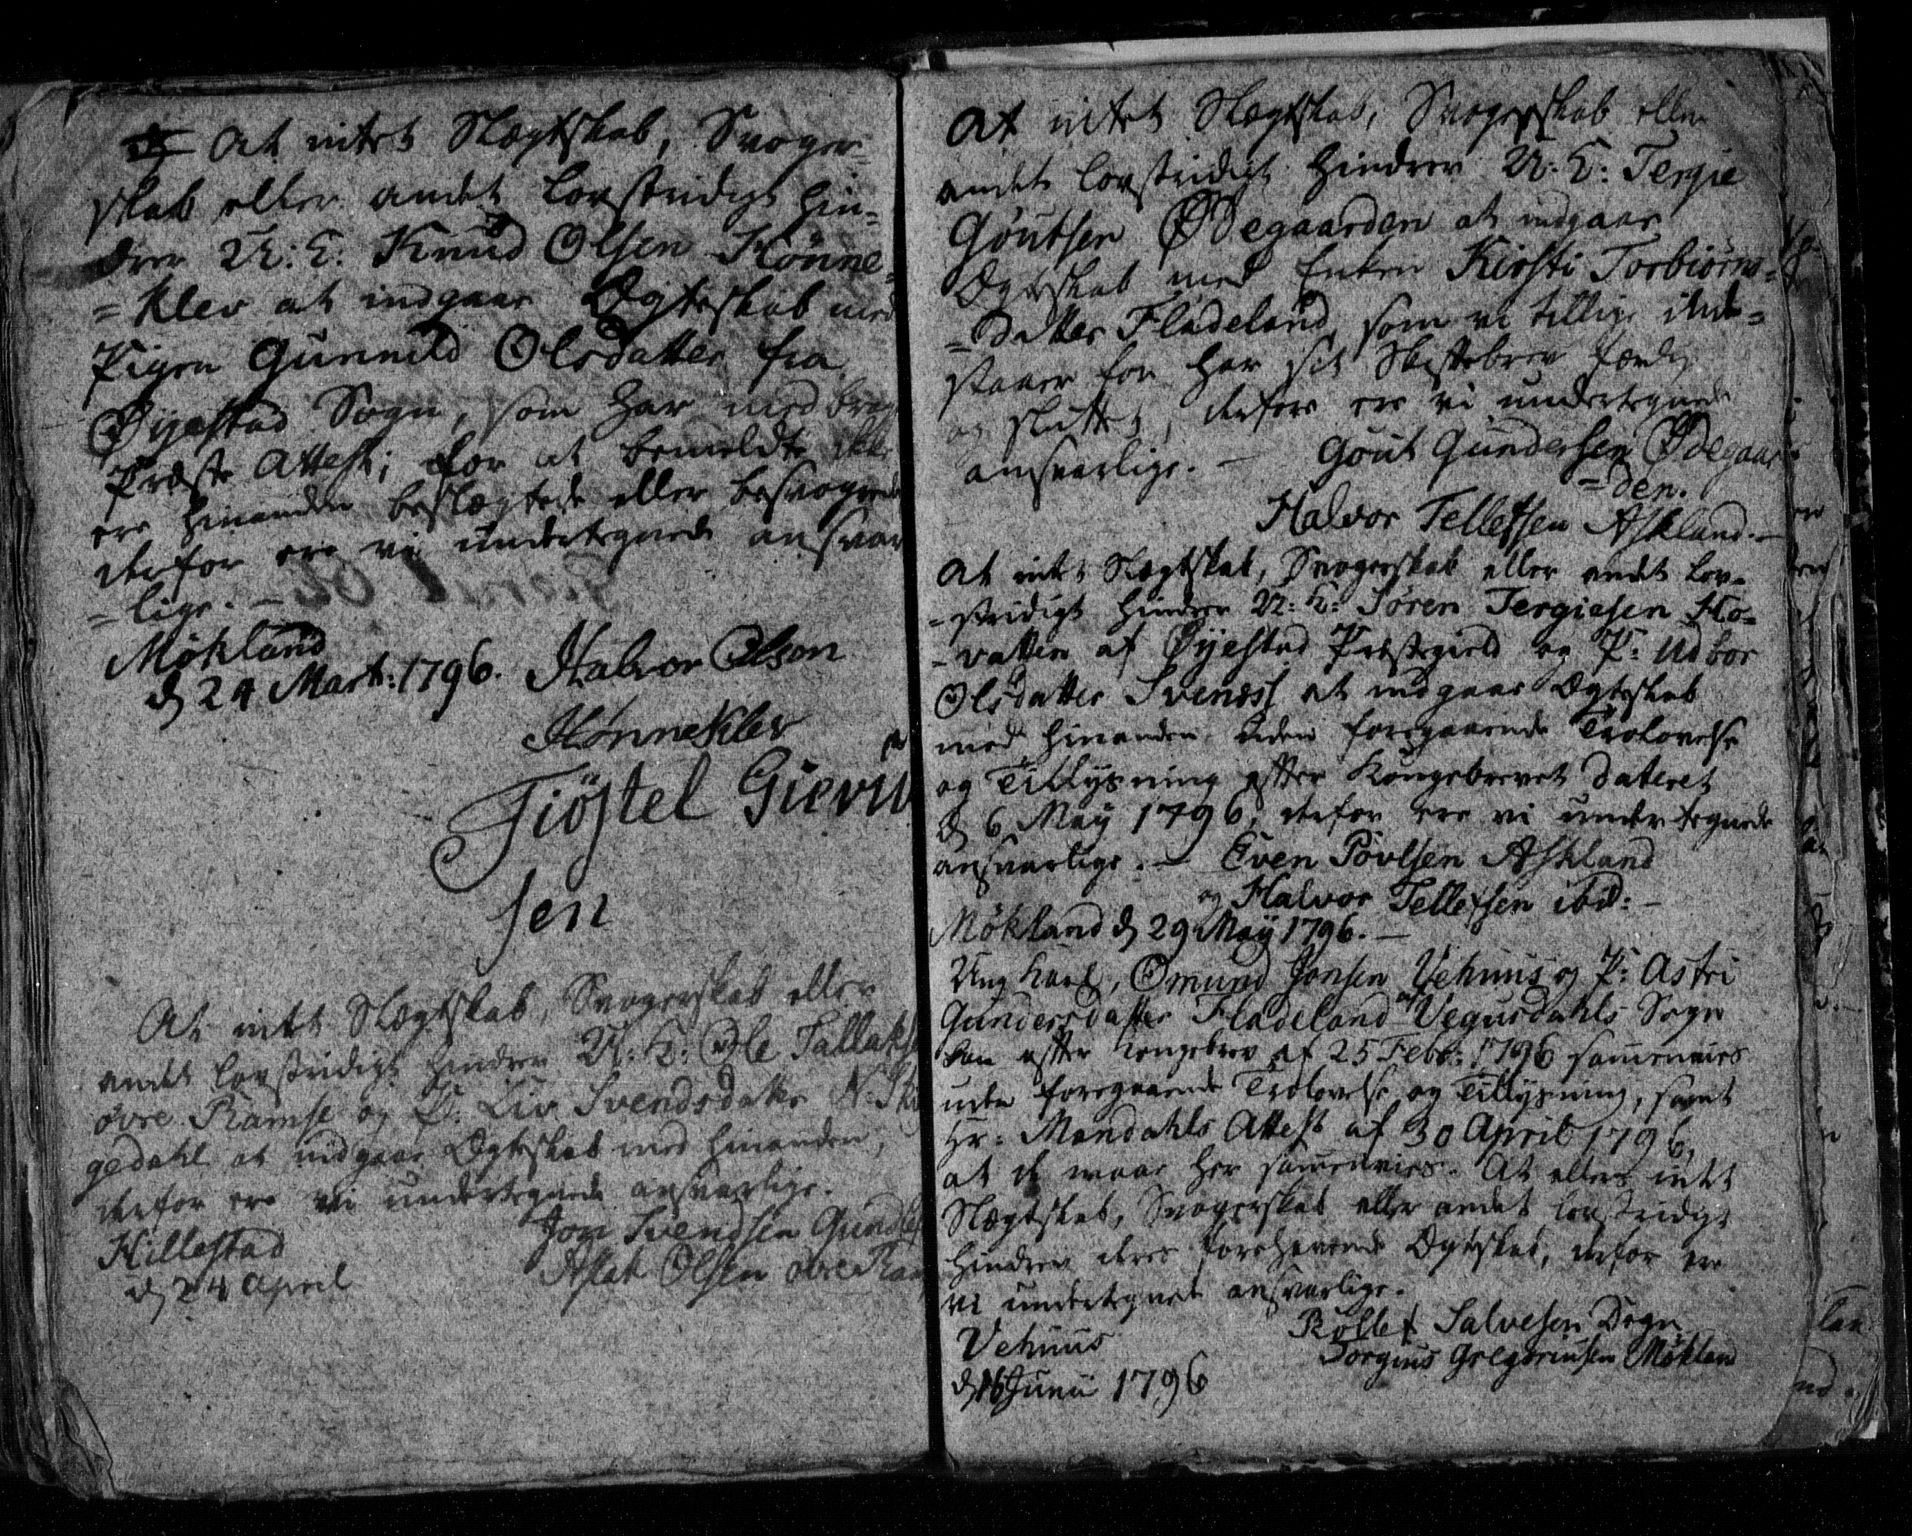 At intet Slægtskab, Svoger=
skab eller andet lovstridigt hin=
drer U: K: Knud Olsen Hønne=
=klev at indgaae Ægteskab med
Pigen Gunnild Olsdatter fra
Øyestad Sogn, som har medbragt
Præste Attest; for at bemeldte ikke
ere hinanden beslægtede eller besvogrede
derfor ere vi undertegnede ansvar
=lige. –
Møkland
d 24 Mart: 1796. Halvor Olson
Hønneklev
Tiøstel Gievit
sen
At intet Slægtskab, Svogerskab eller
andet lovstridigt hindrer U: K: Ole Tallaks
øvre Ramse og P: Liv Svendsdatter N:
gedahl at indgaae Ægteskab med hinanden,
derfor ere vi undertegnede ansvarlige.
Hillestad Jon Svendsen
d 24 April Aslak Olsen øvre Ram
At intet Slægtskab, Svogerskab eller
andet lovstridigt hindrer U: K: Tergie
Goutsen Ødegaarden at indgaae
Ægteskab med Enken Kirsti Torbiørns=
=datter Fladeland, som vi tillige inde=
staaer for har sit Skiftebrev færdig
og sluttet, derfore ere vi undertegnede
ansvarlige. – Gout Gundersen Ødegaar
=den.
Halvor Tellefsen Askland. –
At intet Slægtskab, Svogerskab eller andet lov=
=stridigt hindrer U: K: Søren Tergiesen Ho=
=vatten af Øyestad Præstegield og P: Udbor
Olsdatter Svenæs at indgaae Ægteskab
med hinanden uden foregaaende Trolovelse
og Tillysning efter Kongebrevet dateret
d 6 May 1796, derfor ere vi undertegnede
ansvarlige. – Even Povlsen Askland
og Halvor Tellefsen ibid: –
Møkland d 29 May 1796. –
Ung karl, Omund Jonsen Vehuus og P: Astri
Gundersdatter Fladeland af Vegusdahls Sogn
kan efter kongebrev af 25 Febr: 1796 sammenvies
uden foregaaende Trolovelse og Tillysning, samt
Hr: Mandahls Attest af 30 April 1796,
at de maae her sammenvies. At ellers intet
Slægtskab, Svogerskab eller andet lovstridigt
hindrer deres forehavende Ægteskab, derfor ere
vi undertegnede ansvarlige.
Vehuus Rollef Salvesen Dogn
d 16 Junii 1796 Torgius Gregoriusen Møkland